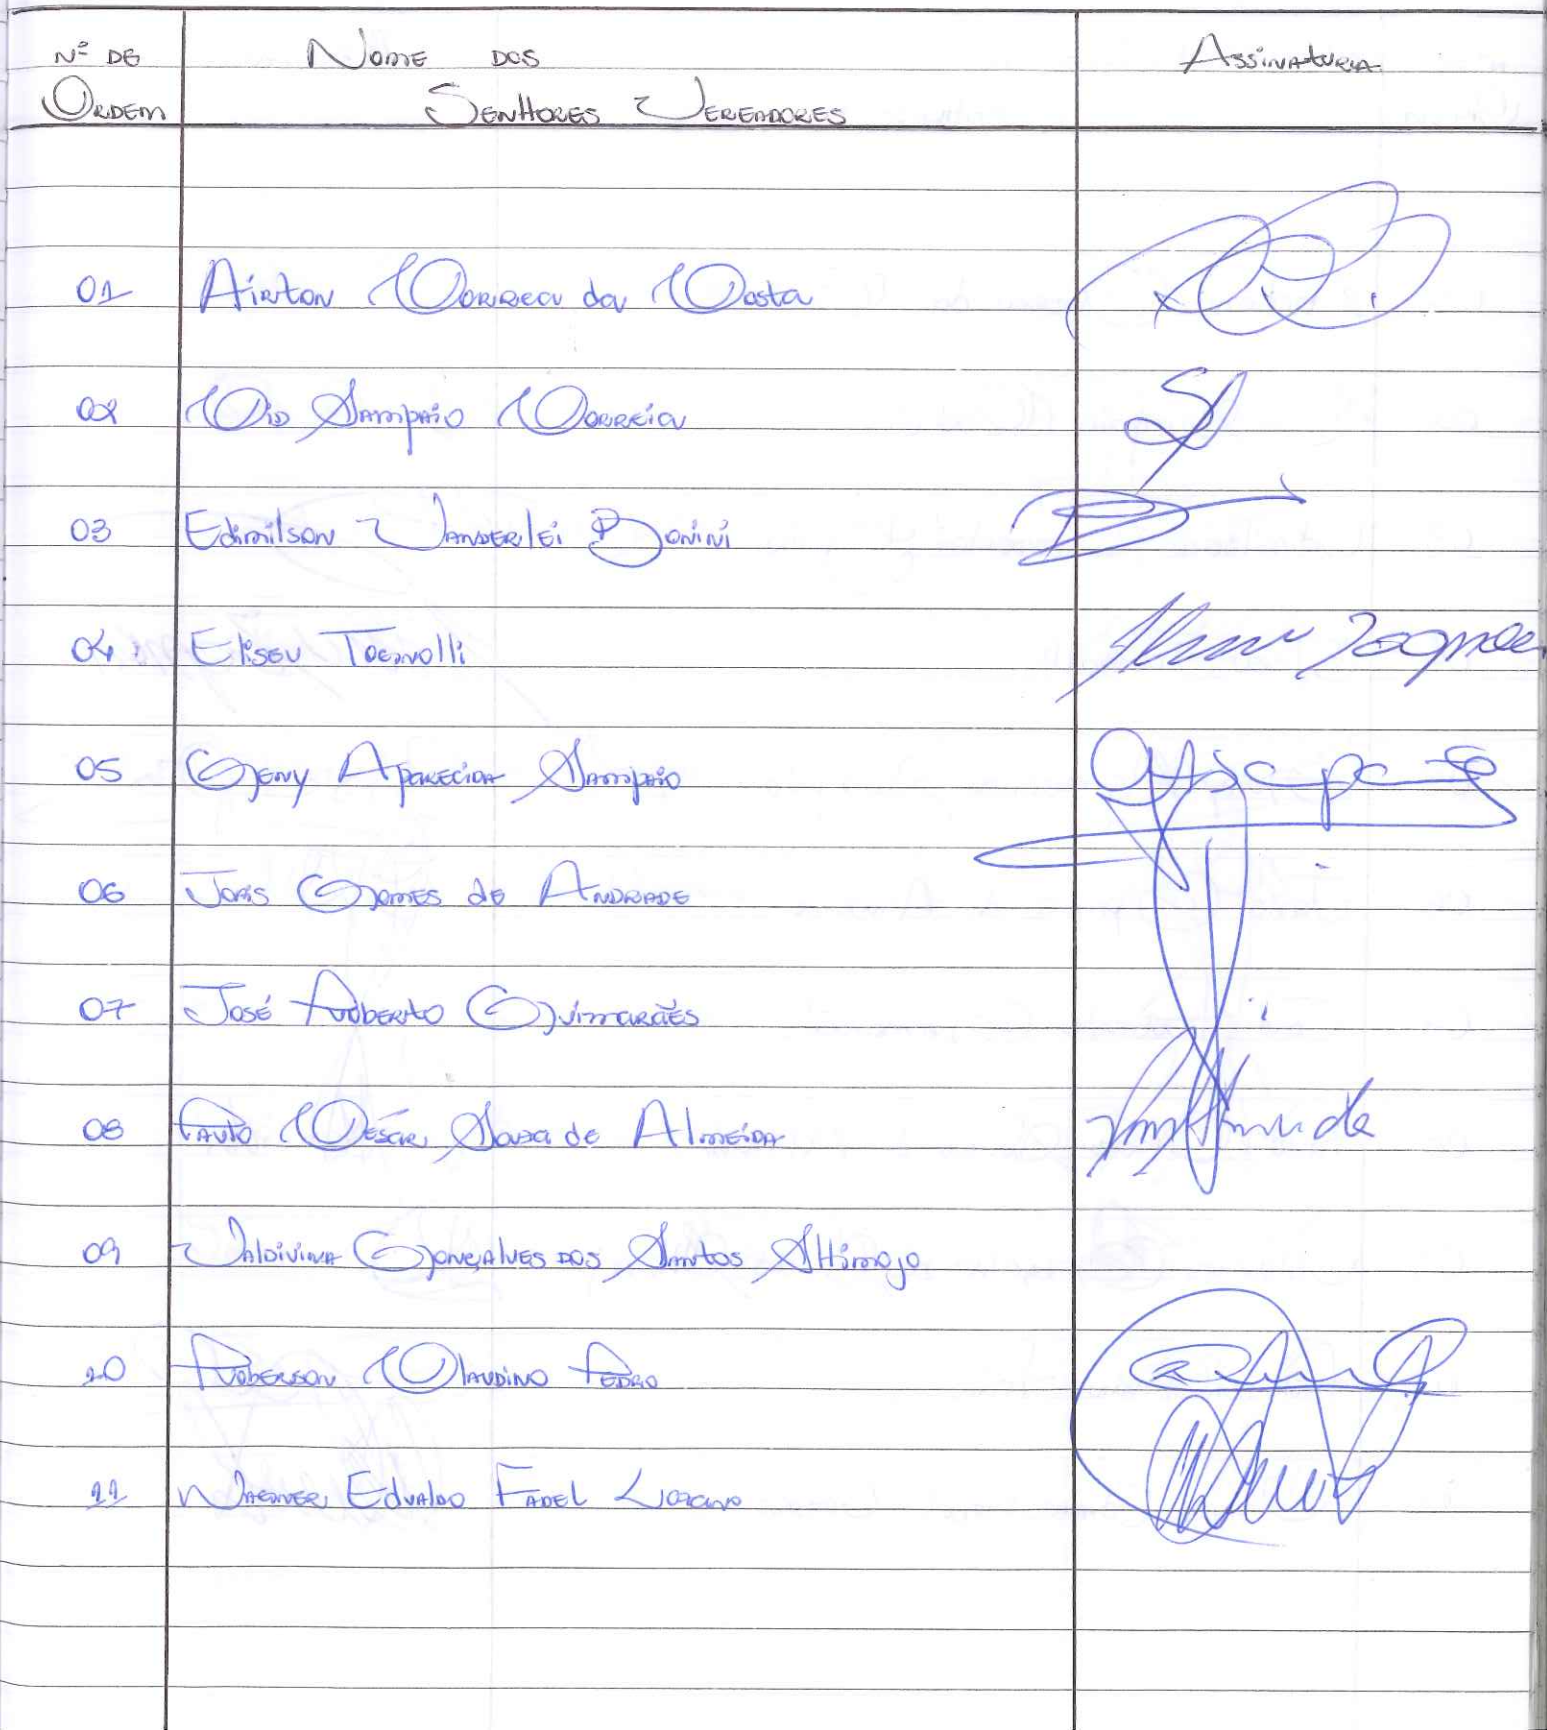 Nº DE NOME DOS ASSINATURA
ORDEM SENHORES VEREADORES
01 Airton Correa da Costa
02 Cid Sampaio Correia
03 Edimilson Vanderlei Bonini
04 Eliseu Tognolli
05 Geny Aparecida Sampaio
06 Jois Gomes de Andrade
07 José Roberto Guimarães
08 Paulo César Souza de Almeida
09 Valdivina Gonçalves dos Santos
10 Roberson Claudino Pedro
11 Wagner Edvaldo Fadel Lozano